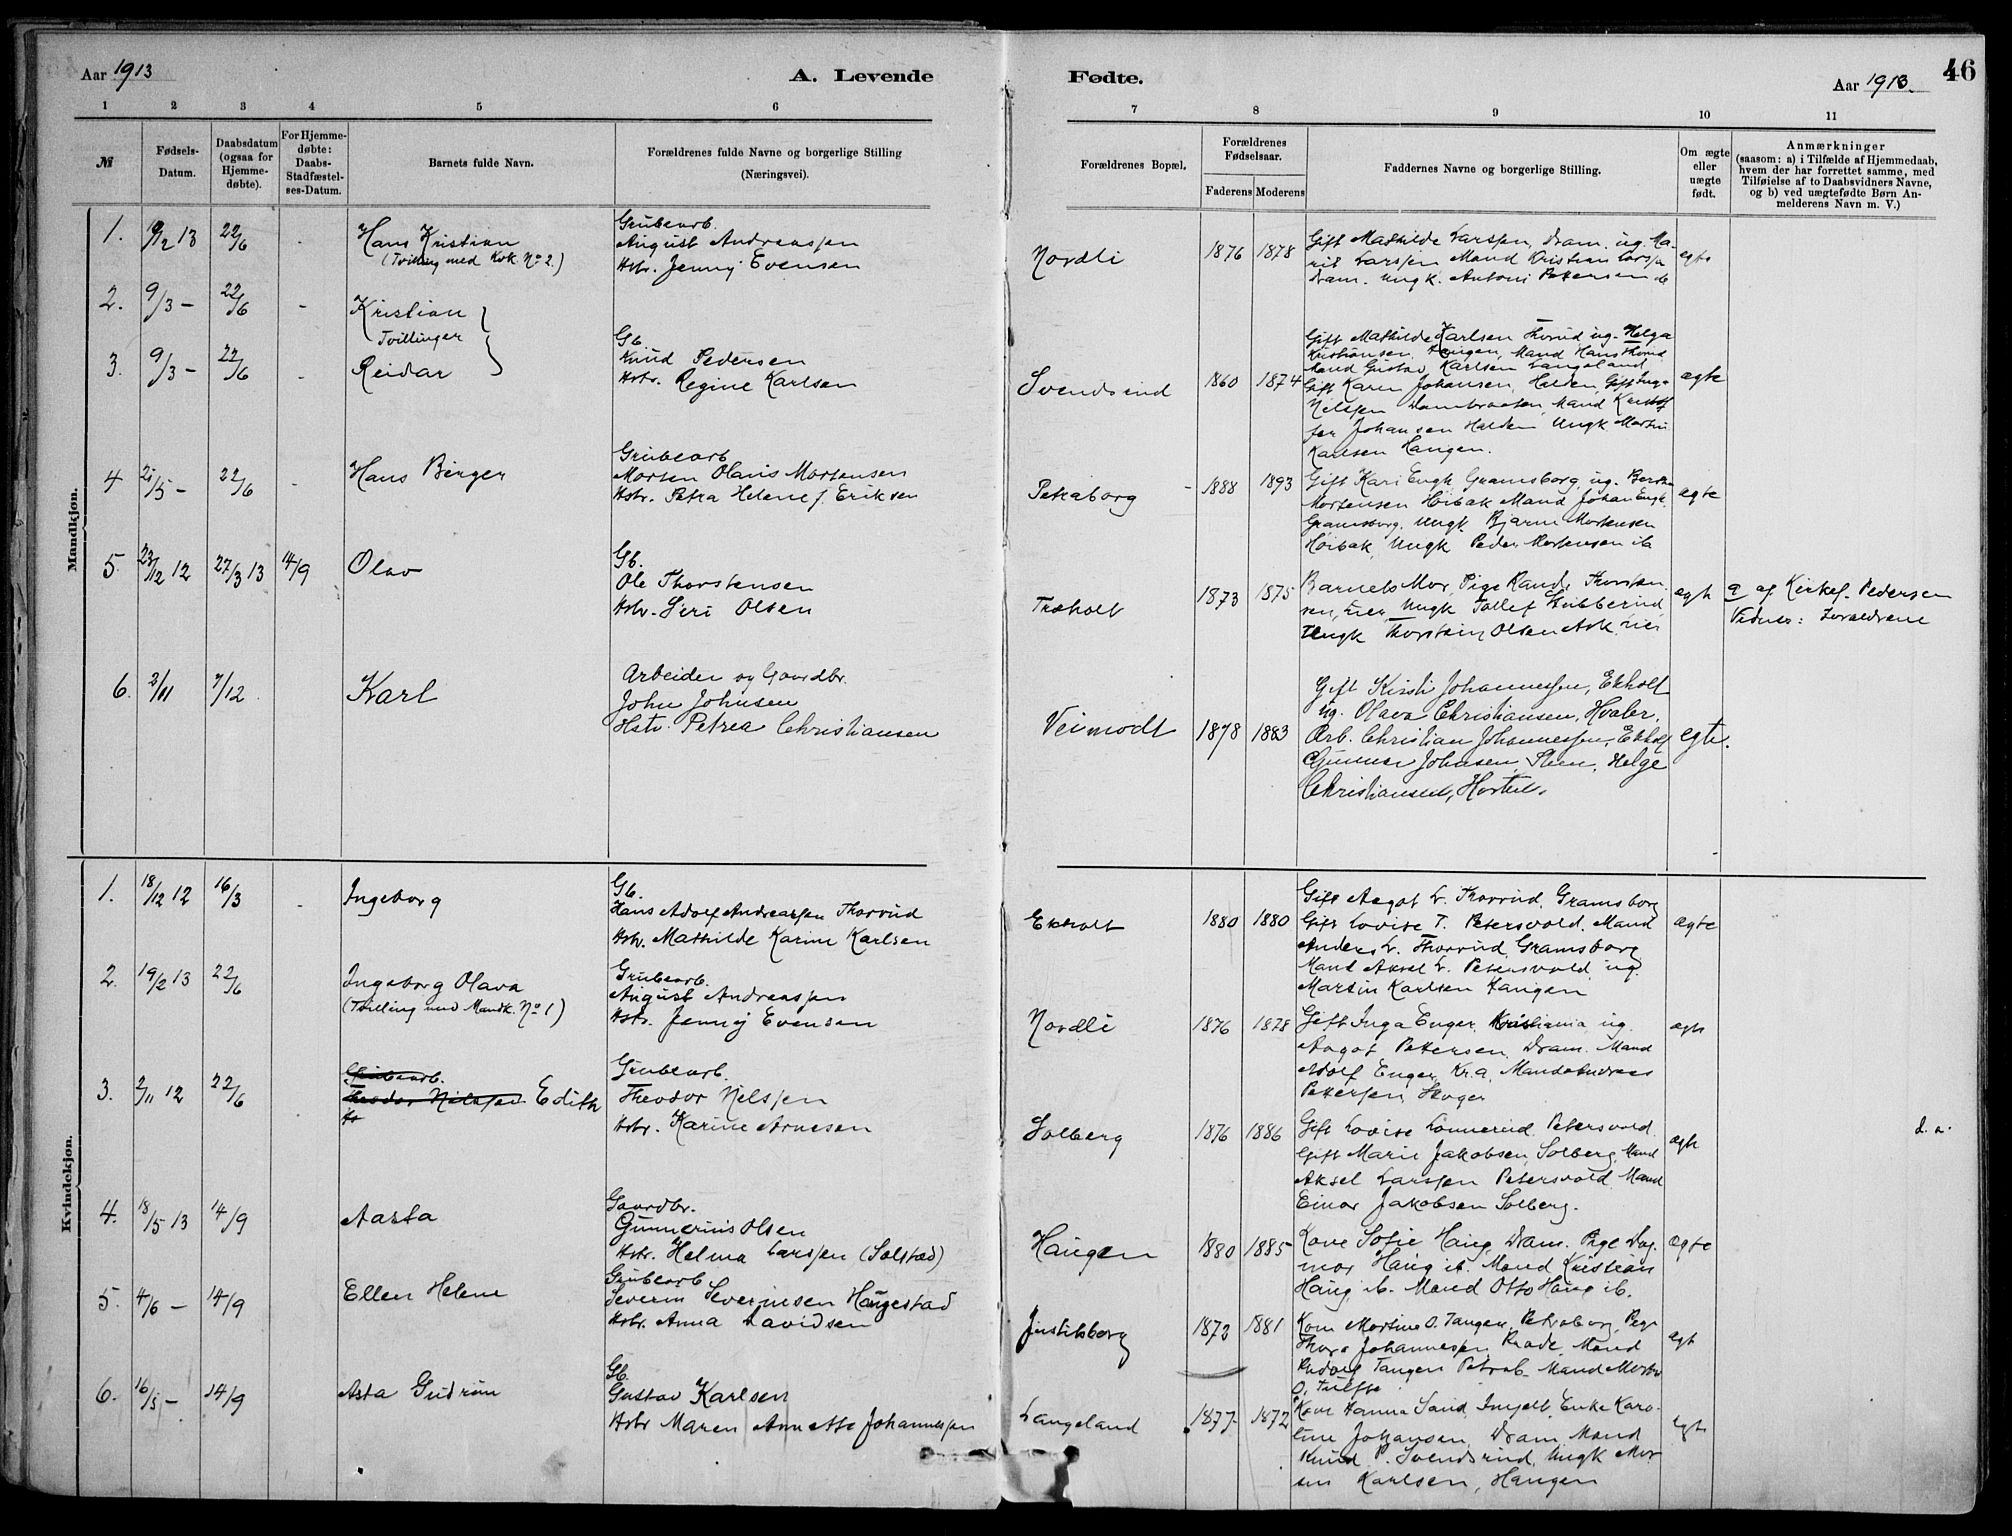 Aar 1913
A. Levende
Fødte.
Aar 1913.
46
1 2 3 4 5 6 7 8 9 10 11
№
Fødsels-
Datum.
Daabsdatum
(ogsaa for
Hjemme-
døbte).
For Hjemme-
døbte:
Daabs-
Stadfæstel-
ses-Datum.
Barnets fulde Navn.
Forældrenes fulde Navne og borgerlige Stilling
(Næringsvei).
Forældrenes Bopæl.
Forældrenes
Fødselsaar.
Faderens
Moderens
Faddernes Navne og borgerlige Stilling.
Om ægte
eller
uægte
født.
Anmærkninger
(saasom: a) i Tilfælde af Hjemmedaab,
hvem der har forrettet samme, med
Tilføielse af to Daabsvidners Navne,
og b) ved uægtefødte Børn An-
melderens Navn m. V.)
Mandkjøn.
1. 19/2 13 22/6 -
Hans Kristian
(Tvilling med Kvk. No 2.)
Grubearb.
August Andreassen
Hstr. Jenny Evensen
Nordli
1876 1878
Gift Mathilde Larssen, Dram. ug. Ma-
rit Larssen Mand Kristian Larssen
Dram. Ungk. Antoni Pettersen do
egte
2. 9/3 - 22/6 -
Kristian
Tvillinger
3. 9/3 - 22/6 -
Reidar
Gb.
Knud Pedersen
Hstr. Regine Karlsen
Svendsrud
1860 1874
Gift Mathilde Karlsen Thorud ug. Helga
Kristiansen, Haugen, Mand Hans Thorud
Mand Gustav Karlsen Langeland
Gift Karen Johansen, Halden, Gift Inga
Nilssen Dambraaten, Mand Kristof
fer Johansen Halden Ungk Martin
Karlsen Haugen.
ægte
4 21/5 - 22/6 -
Hans Birger
Grubearb
Morten Olaus Mortensen
Hstr. Petra Helene f. Eriksen
Petraborg
1888 1893
Gift Kari Engh Gramsborg, ug. Bertha
Mortensen Høibak, Mand Johan Engh
Gramsborg, Ungk. Bjarne Mortensen
Høibak, Ungk Peder Mortensen ib
ægte
5. 23/12 12 27/3 13 14/9
Olav
Gb.
Ole Thorstensen
Hstr. Siri Olsen
Træholt
1873 1875
Barnets Mor, Pige Randi Thorsten
sen, Lier, Ungk Tollef Stubberud,
Ungk Thorstein Olsen Ask, Lier
egte
a af Kirkes. Pedersen
Vidner: Forældrene
6. 2/11 7/12
Karl
Arbeider og Gaardbr.
John Johnsen
Hstr. Petrea Christiansen
Veimodt
1878 1883
Gift Kirsti Johannessen, Ekholt
ug. Olava Christiansen, Hvaler.
Arb. Christian Johannessen, Ekholt
Gunnar Johnsen, Steen, Helge
Christiansen, Horten.
egte.
Kvindekjøn.
1. 18/12 12 16/3 -
Ingeborg
Gb.
Hans Adolf Andreassen Thorrud
Hstr. Mathilde Karine Karlsen
Ekholt
1880 1880
Gift Aagot L. Thorrud, Gramsborg
Gift Lovise T. Petersvold, Mand
Anders L. Thorrud, Gramsborg
Mand Aksel L. Petersvold, ug.
Martin Karlsen Haugen
ægte
2. 19/2 13 22/6
Ingeborg Olava
(Tvilling med Mandk. No 1)
Grubearb.
August Andreassen
Hstr. Jenny Evensen
Nordli
1876 1878
Gift Inga Enger, Kristiania, ug.
Aagot Pettersen, Dram. Mand
Adolf Enger, Kr.a, Mand Andreas
Pettersen, Skoger
egte
3. 2/11 12 22/6
Grubearb.
Theodor Nilssen Edith
Hst
Grubearb.
Theodor Nilssen
Hstr. Karine Arnesen
Solberg
1876 1886
Gift Lovise Lønnerud, Petersvold.
Gift Marie Jakobsen, Solberg, Mand
Aksel Larssen Petersvold, Mand
Einar Jakobsen Solberg.
egte
d. a.
4. 18/5 13 14/9
Aasta
Gaardbr.
Gunnerius Olsen
Hstr. Helma Larssen (Solstad)
Haugen
1880 1885
Kone Sofie Haug, Dram. Pige Dag
mar Haug ib. Mand Kristian
Haug, ib. Mand Otto Haug ib.
ægte
5. 4/6 - 14/9
Ellen Helene
Grubearb
Severin Severinsen Haugestad
Hstr. Anna Davidsen
Justiksborg
1872 1881
Kone Martine O. Tangen, Petraborg, Pige
Thora Johannessen, Raade, Mand
Rudolf Tangen Petrab. Mand Morten
O.
egte
6. 16/5 - 14/9
Asta Gudrun
Gb.
Gustav Karlsen
Hstr Maren Annette Johannessen
Langeland
1877 1872
Kone Hanna Sand, Enke Karo-
line Johansen, Dram, Mand
Knud P. Svendsrud, Ungk Mor
ten Karlsen, Haugen
egte